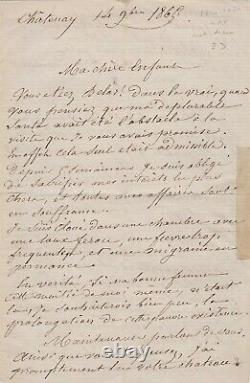 Châtenay 14 9bre 1868
Ma chère Enfant
Vous étiez Hélas! dans le vrai, quand
vous pensiez que ma déplorable
Santé avait été l'obstacle à la
visite que je vous avais promise.
En effet cela seul était admissible.
Depuis 5 semaines je suis obligé
de sacrifier mes intérêts les plus
chers, et toutes mes affaires sont
en souffrance.
Je suis cloué dans une chambre avec
une toux féroce, une fièvre trop
fréquente, et une migraine en
permanence.
En vérité, si ma bonne femme
cette moitié de moi même, n'était
là, je souhaiterais bien peu, la
prolongation de cette pauvre existence.
Maintenant parlons de vous.
Ainsi que vous
promptement votre château
eBay